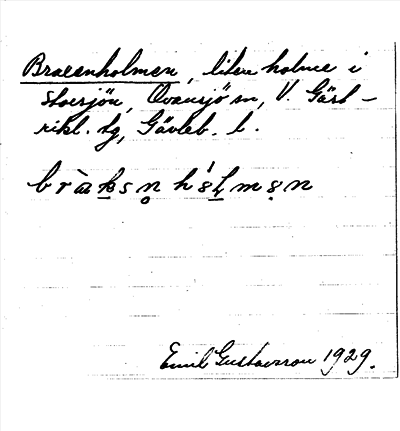 Braxenholmen, liten holme i
Storsjön, Ovansjö sn, V. Gäst-
rikl. tg, Gävleb. l.
Emil Gustavsson 1929.